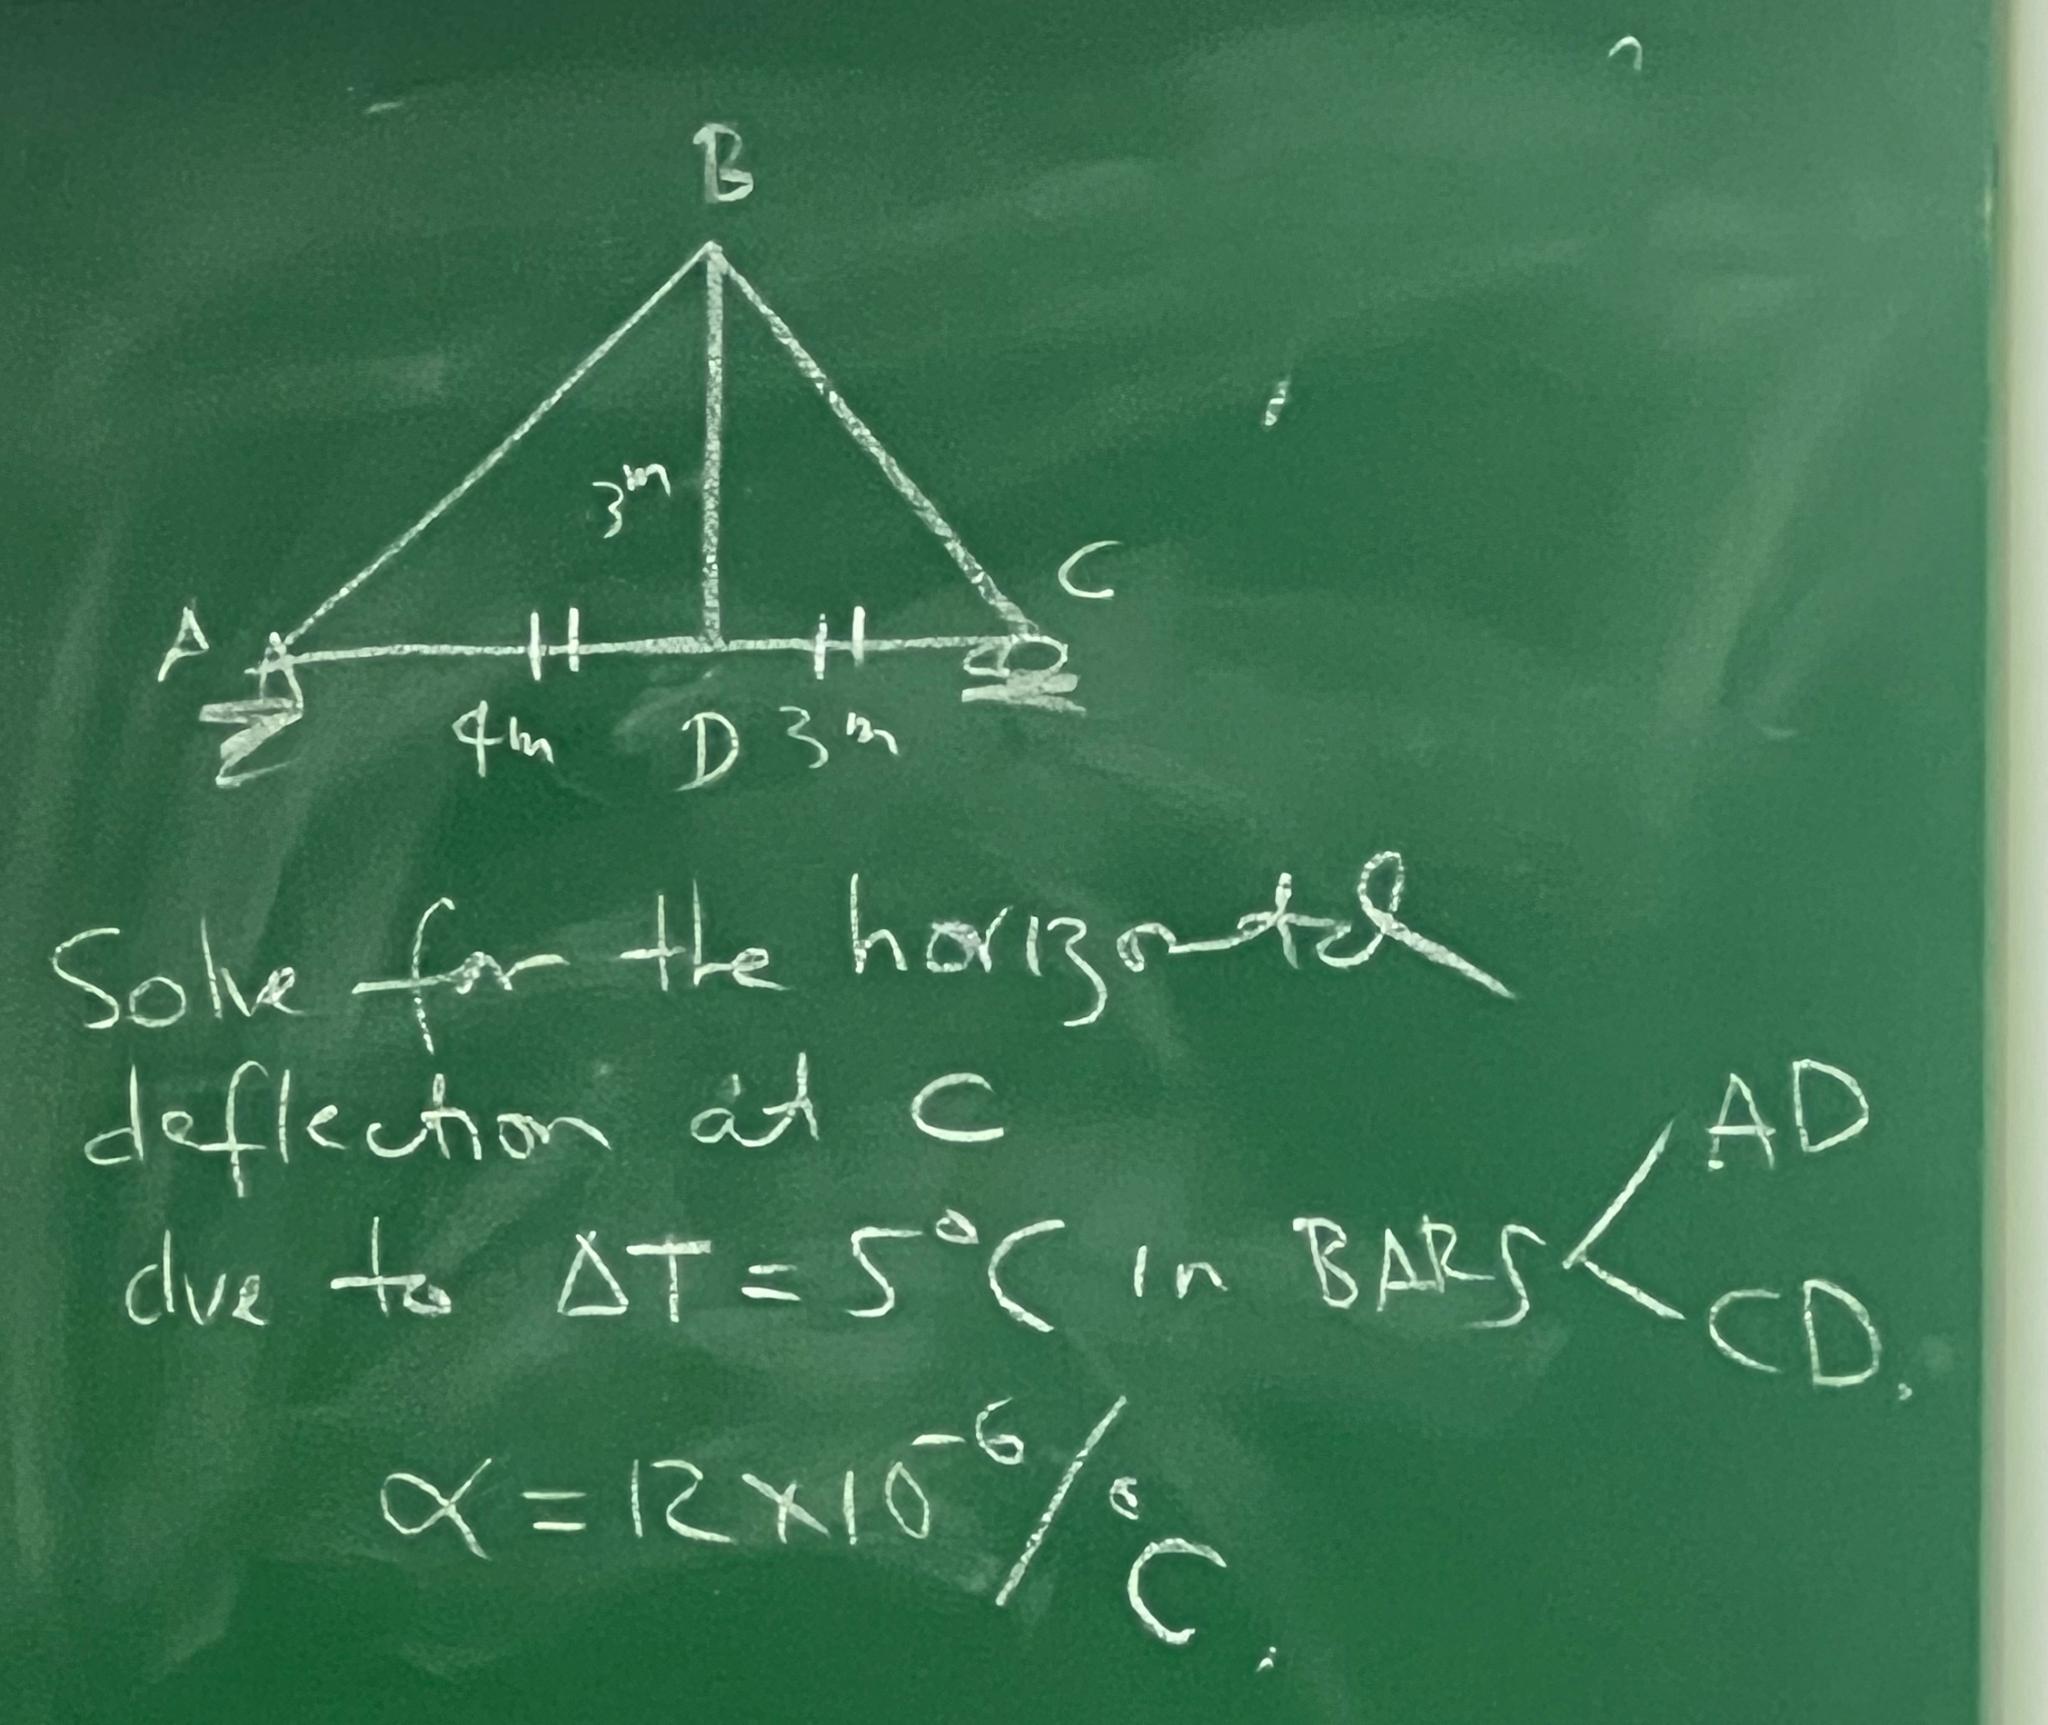 B
3m
A
C
4m D 3m
Solve for the horizontal
deflection at C
AD
due to ΔT = 5°C in BARS
CD.
α = 12×10⁻⁶/°C.